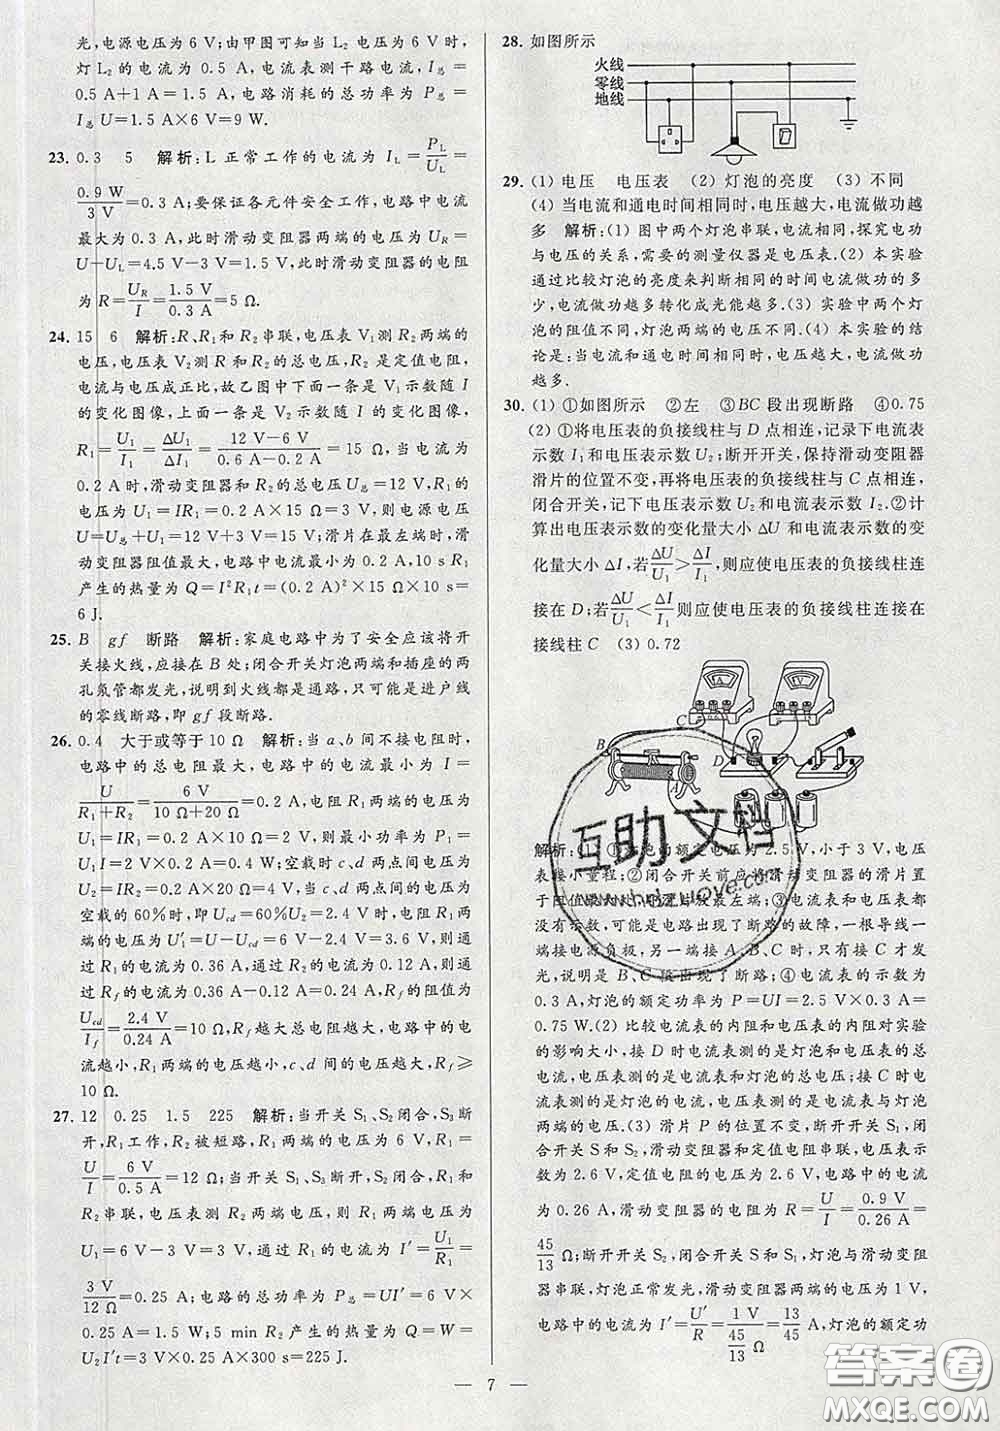 光,电源电压为 6 V;由甲图可知当 L₂ 电压为 6 V 时,
灯 L₂ 的电流为 0.5 A,电流表测干路电流,I总 =
0.5 A+1 A=1.5 A,电路消耗的总功率为 P总 =
I总U=1.5 A×6 V=9 W.
23. 0.3 5 解析:L 正常工作的电流为 I_L = P_L/U_L =
0.9 W/3 V = 0.3 A;要保证各元件安全工作,电路中电流
最大为 0.3 A,此时滑动变阻器两端的电压为 U_R =
U−U_L=4.5 V−3 V=1.5 V,此时滑动变阻器的电阻
为 R = U_R/I = 1.5 V/0.3 A = 5 Ω.
24. 15 6 解析:R、R₁ 和 R₂ 串联,电压表 V₁ 测 R₁ 两端的
电压,电压表 V₂ 测 R 和 R₂ 的总电压,R₂ 是定值电阻,
电流与电压成正比,故乙图中下面一条是 V₁ 示数随 I
的变化图像,上面一条是 V₂ 示数随 I 的变化图像,
R₁ = U₁/I₁ = ΔU₁/ΔI₁ = (12 V−6 V)/(0.6 A−0.2 A) = 15 Ω,当电流为
0.2 A 时,滑动变阻器和 R₂ 的总电压为 U总=12 V,R₁
的电压为 U₁ = IR₁ = 0.2 A×15 Ω = 3 V,则电源电压
U=U总+U₁=12 V+3 V=15 V;滑片在最左端时,滑
动变阻器阻值最大,电路中电流最小为 0.2 A,10 s R₁
产生的热量为 Q=I²R₁t=(0.2 A)²×15 Ω×10 s=
6 J.
25. B gf 断路 解析:家庭电路中为了安全应该将开
关接火线,应接在 B 处;闭合开关灯泡两端和插座的两
孔氖管都发光,说明到火线都是通路,只可能是进户线
的零线断路,即 gf 段断路.
26. 0.4 大于或等于 10 Ω 解析:当 a、b 间不接电阻时,
电路中的总电阻最大,电路中的电流最小为 I =
U/(R₁+R₂) = 6 V/(10 Ω+20 Ω) = 0.2 A,R₁ 两端的电压为
U₁=IR₁=0.2 A×10 Ω=2 V,则最小功率为 P₁=
IU₁=2 V×0.2 A=0.4 W;空载时 c、d 两点间电压为
U₂=IR₂=0.2 A×20 Ω=4 V,c、d 两点间的电压为
空载的 60%时,即 U_cd=60%U₂=2.4 V 时,R₁ 两
端的电压为 U′₁=U−U_cd=6 V−2.4 V=3.6 V,则通
过 R₁ 的电流为 0.36 A,通过 R₂ 的电流为 0.12 A,则通
过 R_f 的电流为 0.36 A−0.12 A=0.24 A,R_f 的阻值为
U_cd/I_f = 2.4 V/0.24 A = 10 Ω,R_f 越大总电阻越大,电路中的电
流越小,R₁ 两端的电压越小,c、d 间的电压越大,R_f≥
10 Ω.
27. 12 0.25 1.5 225 解析:当开关 S₁、S₂ 闭合,S₃ 断
开,R₁ 工作,R₂ 被短路,R₁ 两端的电压为 6 V,R₁ =
U/I = 6 V/0.5 A = 12 Ω;当开关 S₁、S₃ 断开,S₂ 闭合,R₁ 和
R₂ 串联,电压表测 R₂ 两端电压,则 R₁ 两端的电压为
U₁=6 V−3 V=3 V;通过 R₁ 的电流为 I′ = U₁/R₁ =
3 V/12 Ω = 0.25 A;电路的总功率为 P总=UI′=6 V×
0.25 A=1.5 W;5 min R₂ 产生的热量为 Q=W=
U₂I′t=3 V×0.25 A×300 s=225 J.
28. 如图所示
火线
零线
地线
29. (1) 电压 电压表 (2) 灯泡的亮度 (3) 不同
(4) 当电流和通电时间相同时,电压越大,电流做功越
多 解析:(1) 图中两个灯泡串联,电流相同,探究电功
与电压的关系,需要的测量仪器是电压表.(2) 本实验
通过比较灯泡的亮度来判断相同的时间电流做功的多
少,电流做功越多转化成光能越多.(3) 实验中两个灯
泡的阻值不同,灯泡两端的电压不同.(4) 本实验的结
论是:当电流和通电时间相同时,电压越大,电流做功
越多.
30. (1) ①如图所示 ②左 ③BC 段出现断路 ④0.75
(2) ①将电压表的负接线柱与 D 点相连,记录下电流表
示数 I₁ 和电压表示数 U₂;断开开关,保持滑动变阻器
滑片的位置不变,再将电压表的负接线柱与 C 点相连,
闭合开关,记下电压表示数 U₂ 和电流表示数 I₂.②计
算出电压表示数的变化量大小 ΔU 和电流表示数的变
化量大小 ΔI,若 ΔU/U₁ > ΔI/I₁ 则应使电压表的负接线柱连
接在 D;若 ΔU/U₁ < ΔI/I₁ 则应使电压表的负接线柱连接在
接线柱 C (3) 0.72
A
V
C
B
D
解析:(1) ①灯泡的额定电压为 2.5 V,小于 3 V,电压
表接小量程;②闭合开关前应将滑动变阻器的滑片置于
阻值最大处,即滑片放最左端;③电流表和电压表都
没有示数,可能是电路出现了断路的故障,一根导线一
端接电源负极,另一端接 A、B、C 时,只有接 C 才发
光,说明是 B、C 段出现了断路;④电流表的示数为
0.3 A,灯泡的额定功率为 P=UI=2.5 V×0.3 A=
0.75 W.(2) 比较电流表的内阻和电压表的内阻对实验
的影响大小,接 D 时电流表测的是灯泡和电压表的总
电流,电压表测的是电流表和灯泡的总电压;接 C 时电
流表测灯泡的电流,电压表测的是电流表和灯泡两
端的总电压.(3) 滑片 P 的位置不变,当断开开关 S₁,闭
合开关 S、S₂,滑动变阻器和定值电阻串联,电压表示
数为 2.6 V,定值电阻的电压为 2.6 V,电路中的电流
为 0.26 A,滑动变阻器的电阻为 R = U/I = 0.9 V/0.26 A =
45/13 Ω;断开开关 S₂,闭合开关 S 和 S₁,灯泡与滑动变阻
器串联,灯泡正常发光,滑动变阻器两端的电压为 1 V,
电路中的电流为 I′ = U′/R = 1 V/(45/13 Ω) = 13/45 A,灯泡的额定功
— 7 —
互助文档
www.hdzuoye.com
答案圈
MXQE.COM